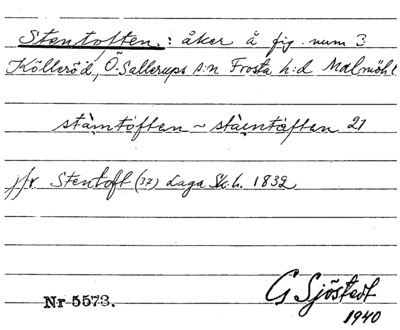 Stentoften.: åker å fig. num 3
Kölleröd, Ö. Sallerups s:n Frosta h:d Malmöhl
stàmtoften ~ stàentåften 21
jfr Stentoft (37) Laga Sk. h. 1832
Nr 5573.
G Sjöstedt
1940